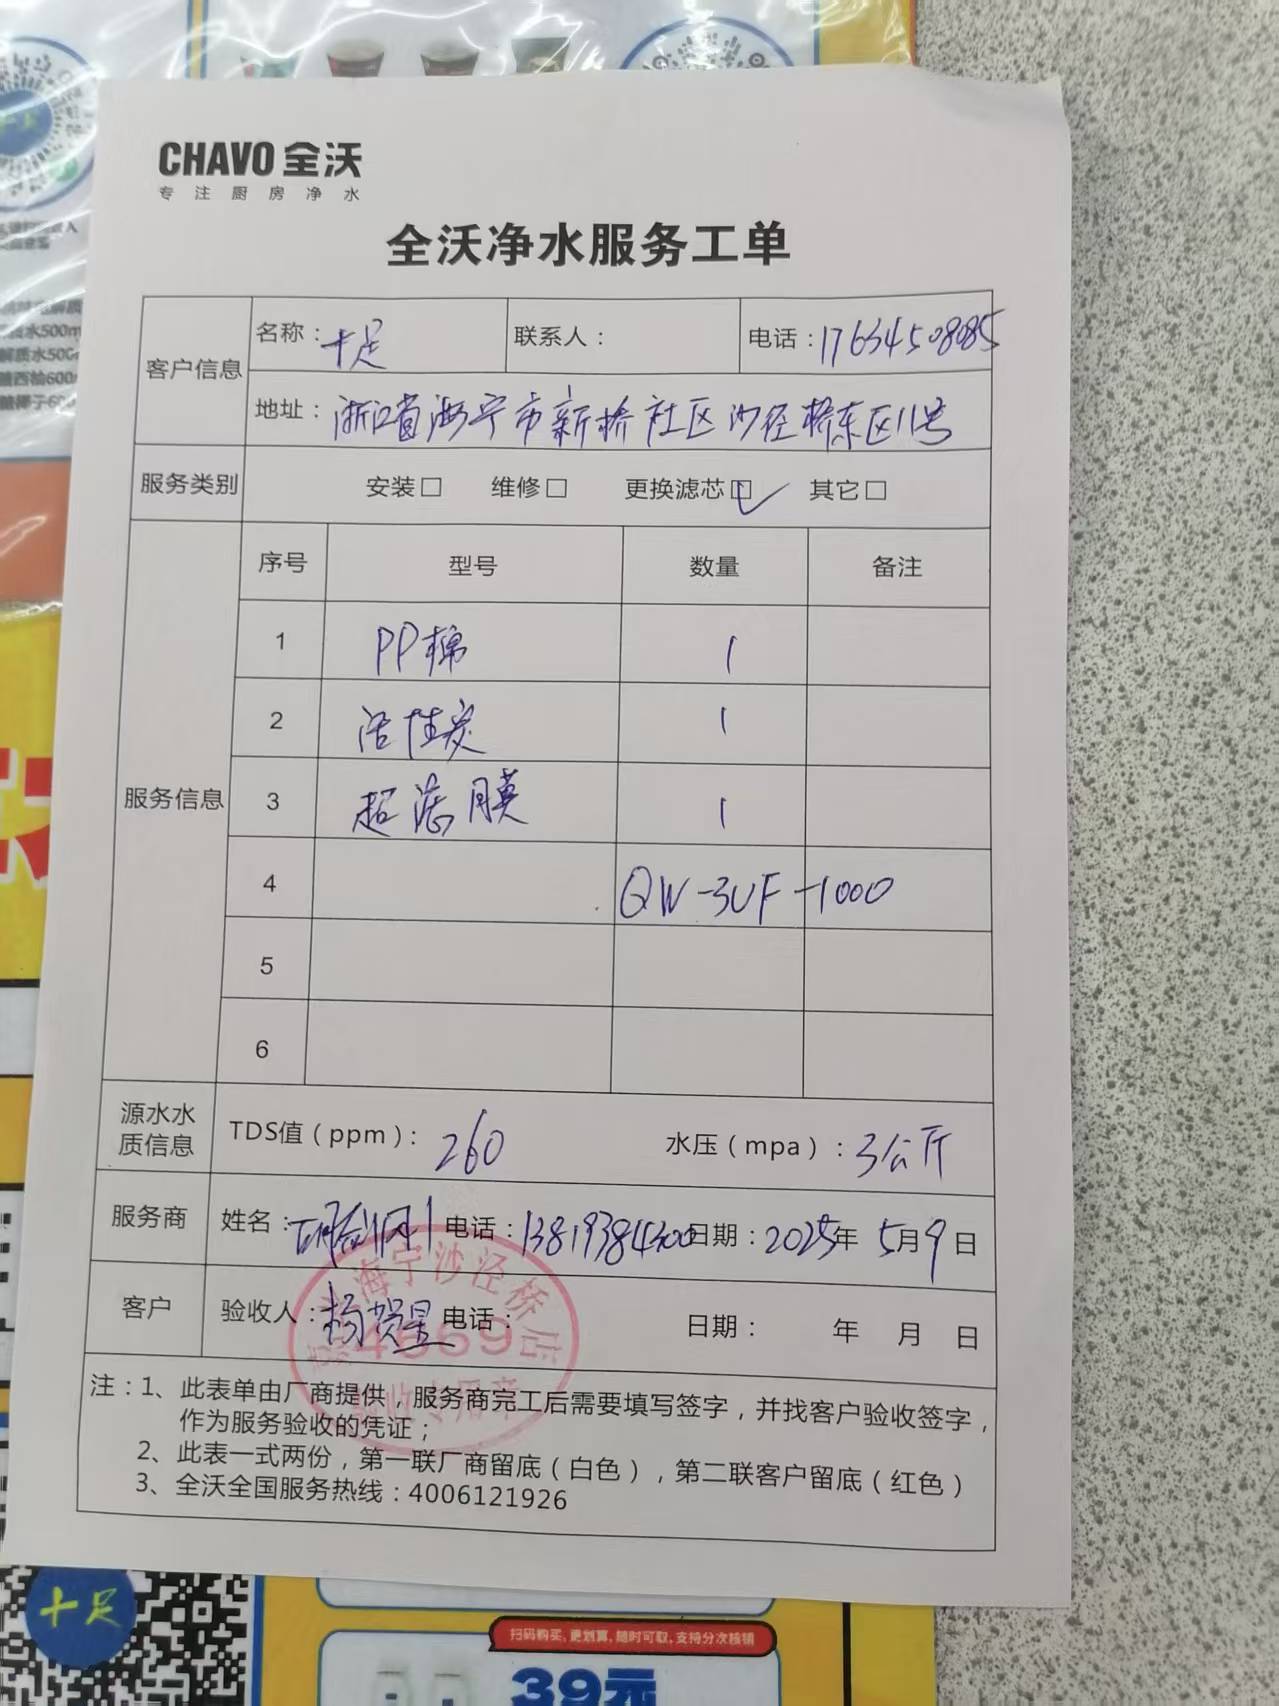 CHAVO 全沃
专注厨房净水
全沃净水服务工单
客户信息
名称：十足 联系人： 电话：17634508085
地址：浙江省海宁市新桥社区沙泾桥东区11号
服务类别 安装□ 维修□ 更换滤芯☑ 其它□
服务信息
序号 型号 数量 备注
1 PP棉 1
2 活性炭 1
3 超滤膜 1
4 QW-3UF-1000
5
6
源水水质信息 TDS值（ppm）：260 水压（mpa）：3公斤
服务商 姓名： 电话：13819384300 日期：2025年 5月9日
客户 验收人：杨贺星 电话： 日期： 年 月 日
海宁沙泾桥店
4669
验收专用章
注：1、此表单由厂商提供，服务商完工后需要填写签字，并找客户验收签字，
作为服务验收的凭证；
2、此表一式两份，第一联厂商留底（白色），第二联客户留底（红色）
3、全沃全国服务热线：4006121926
十足
扫码购买，更划算，随时可取，支持分次核销
39元